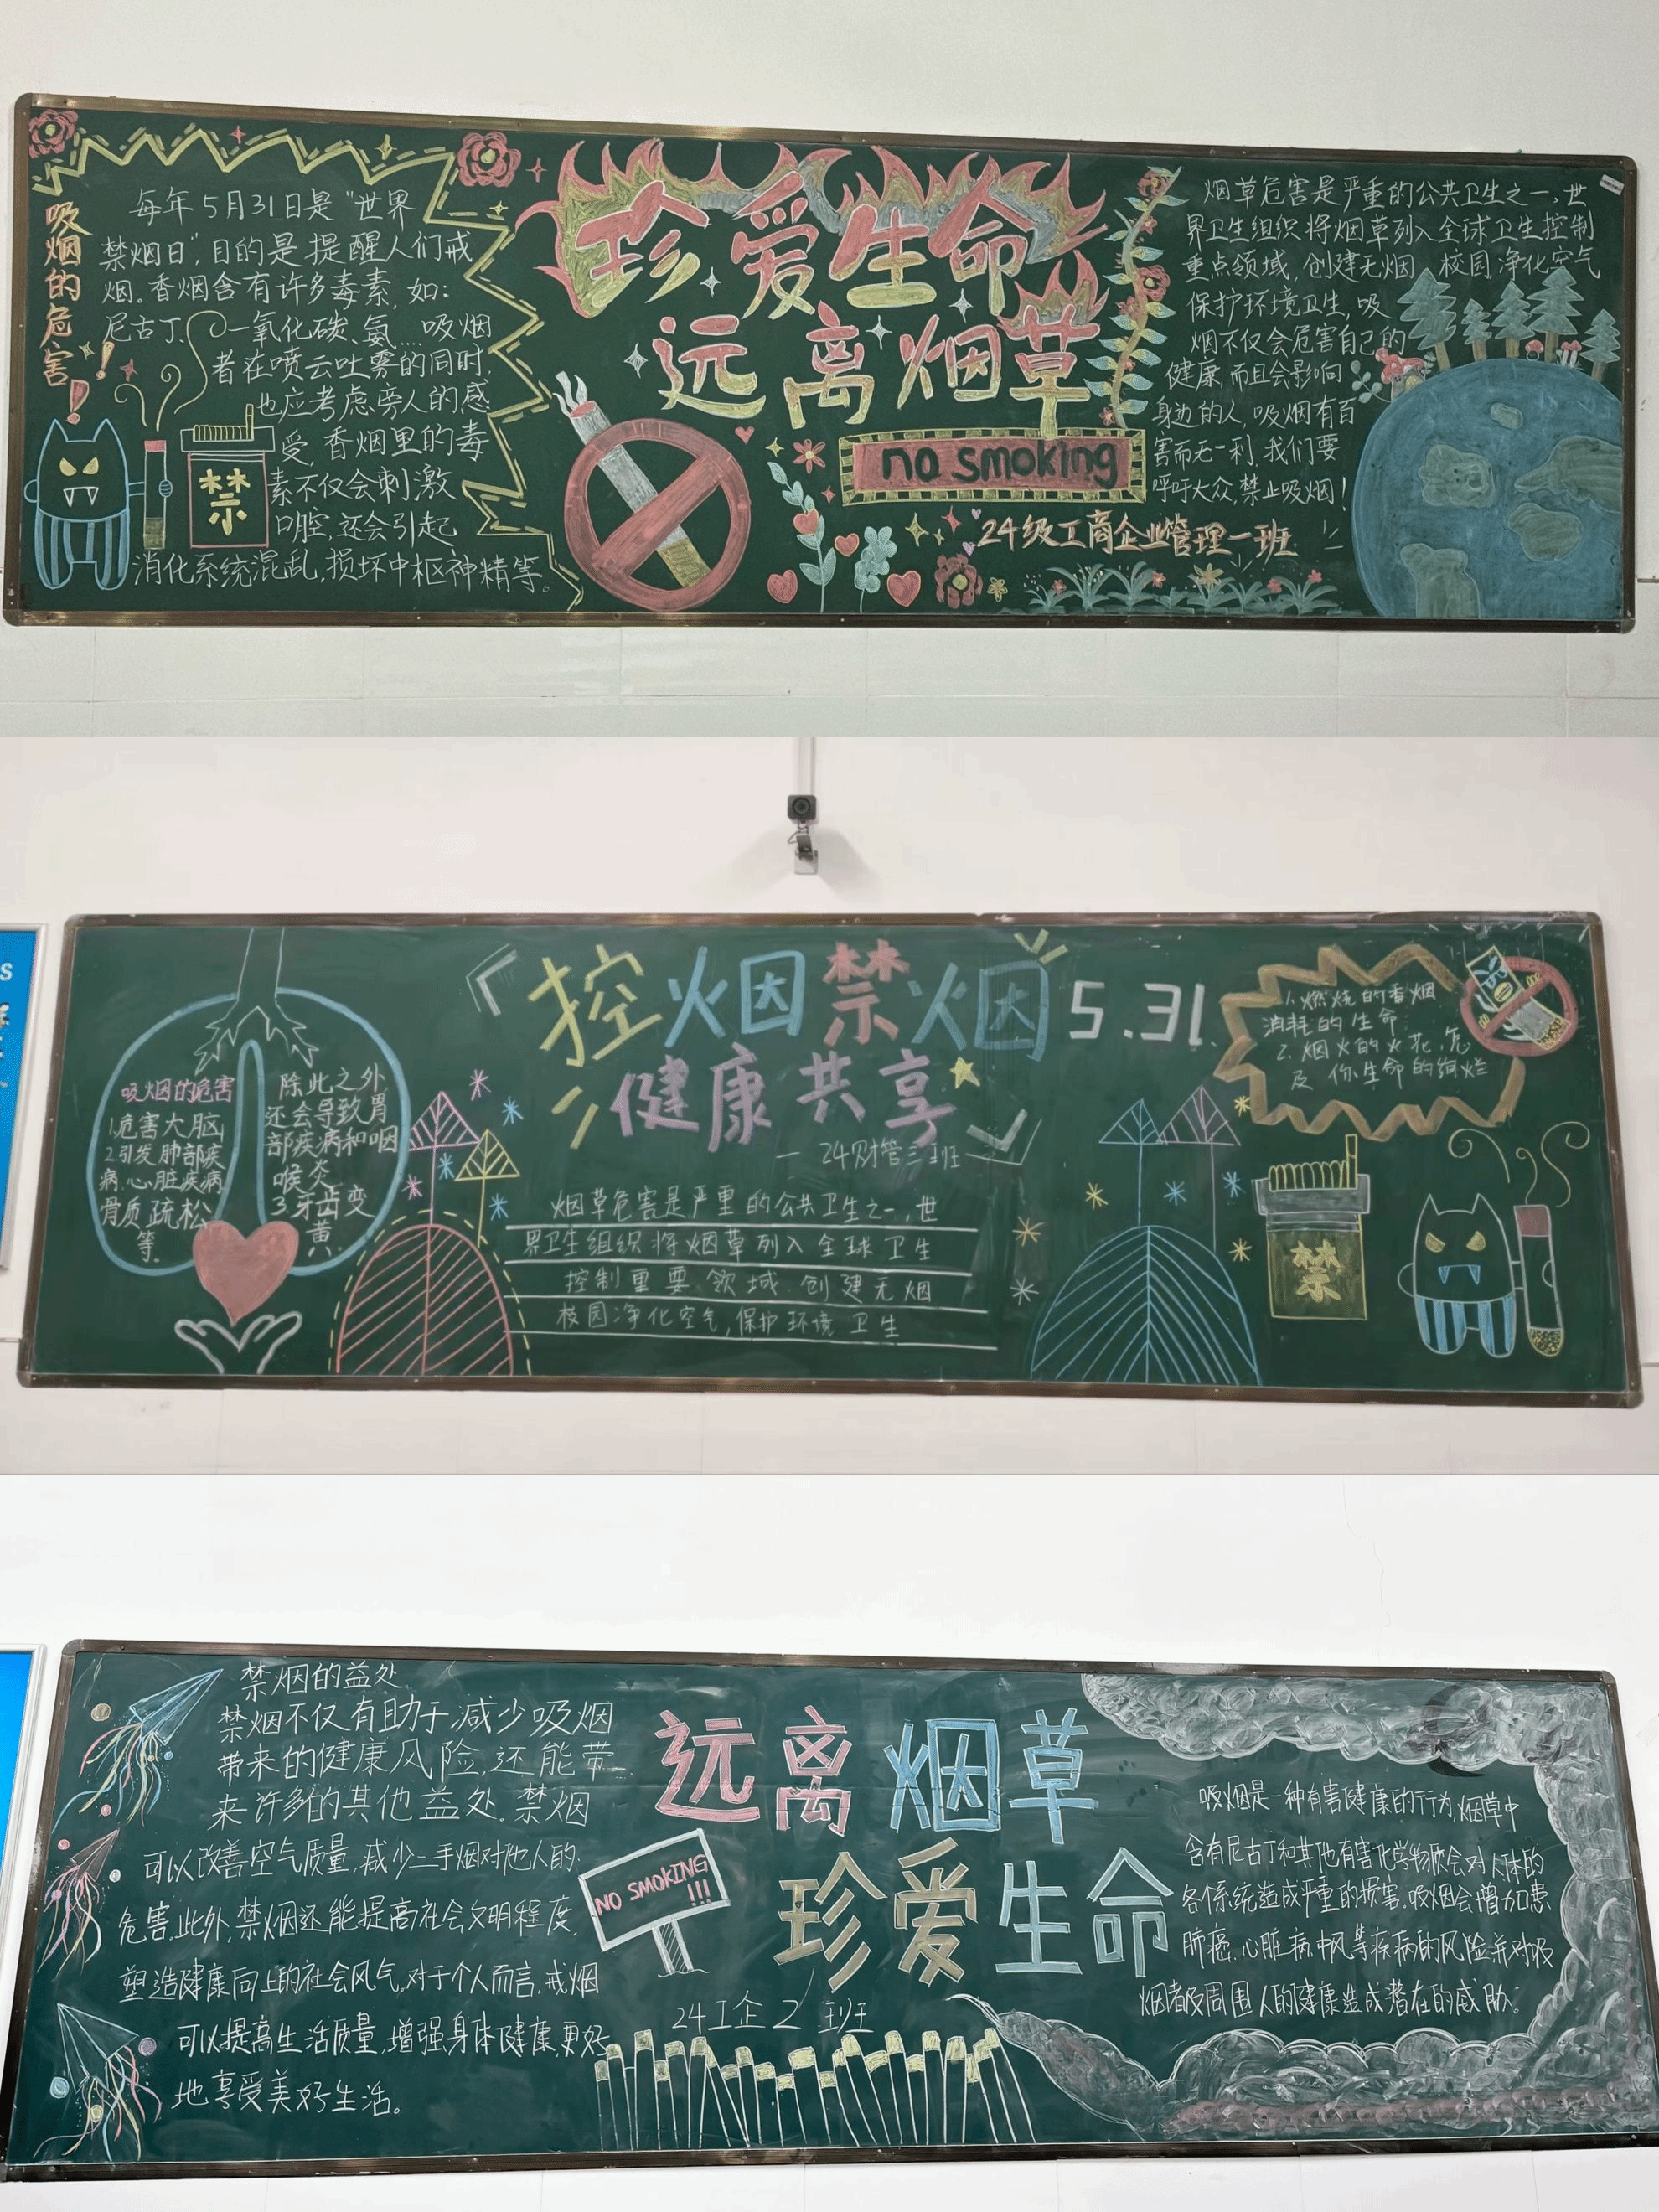 吸烟的危害!!
每年5月31日是“世界
禁烟日”,目的是提醒人们戒
烟。香烟含有许多毒素,如:
尼古丁、一氧化碳、氨...吸烟
者在喷云吐雾的同时,
也应考虑旁人的感
受,香烟里的毒
素不仅会刺激
口腔,还会引起
消化系统混乱,损坏中枢神精等。
禁
珍爱生命
远离烟草
no smoking
24级工商企业管理一班
烟草危害是严重的公共卫生之一,世
界卫生组织将烟草列入全球卫生控制
重点领域,创建无烟 校园,净化空气
保护环境卫生,吸
烟不仅会危害自己的
健康,而且会影响
身边的人,吸烟有百
害而无一利,我们要
呼吁大众,禁止吸烟!
S
吸烟的危害
1.危害大脑
2.引发肺部疾
病,心脏疾病
骨质疏松
等.
除此之外
还会导致胃
部疾病和咽
喉炎
3.牙齿变
黄.
控烟禁烟 5.31
健康共享
— 24财管三班
烟草危害是严重的公共卫生之一,世
界卫生组织将烟草列入全球卫生
控制重要领域.创建无烟
校园净化空气,保护环境卫生
1.燃烧的香烟
消耗的生命
2.烟火的火花,怎
及你生命的绚烂
禁
禁烟的益处
禁烟不仅有助于减少吸烟
带来的健康风险,还能带
来许多的其他益处.禁烟
可以改善空气质量,减少二手烟对他人的
危害.此外,禁烟还能提高社会文明程度,
塑造健康向上的社会风气.对于个人而言,戒烟
可以提高生活质量,增强身体健康,更好
地享受美好生活。
远离烟草
珍爱生命
NO SMOKING
!!!
24工企2班
吸烟是一种有害健康的行为,烟草中
含有尼古丁和其他有害化学物质会对人体的
各个系统造成严重的损害.吸烟会增加患
肺癌.心脏病.中风等疾病的风险,并对吸
烟者及周围人的健康造成潜在的威胁.